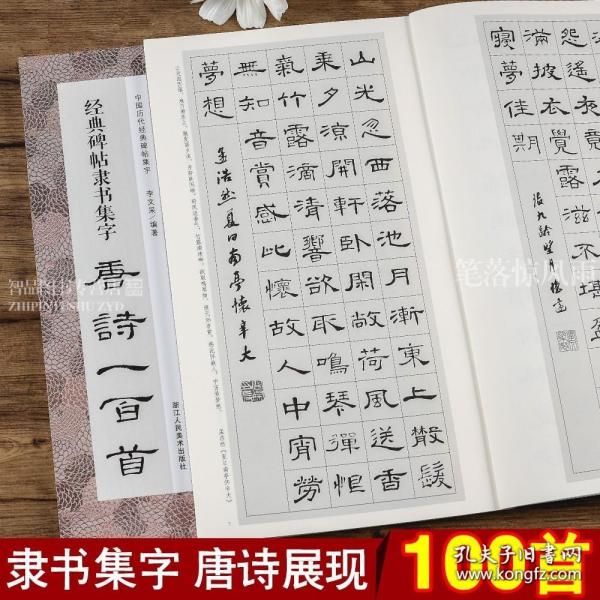 中国历代经典碑帖集字
李文采/编著
经典碑帖隶书集字
唐詩一百首
浙江人民美术出版社
ZHIPINTUSHU ZYD
山光忽西落池月漸東上散髮
乘夕涼開軒卧閑敞荷風送香
氣竹露滴清響欲取鳴琴彈恨
無知音賞感此懷故人中宵勞
夢想
孟浩然夏日南亭懷辛大
怨遥
滿披衣覺露滋不堪盈
寢夢佳期
張九齡望月懷遠
笔落惊风雨
隶书集字 唐诗展现 100首
孔夫子旧书网
www.kongfz.com